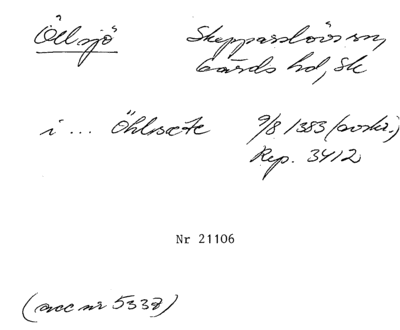 Öllsjö
Skepparslövs sn,
Gärds hd, Sk
i ... Öhlsæte 9/8 1383 (avskr.)
Rep. 3412
Nr 21106
(acc nr 5338)